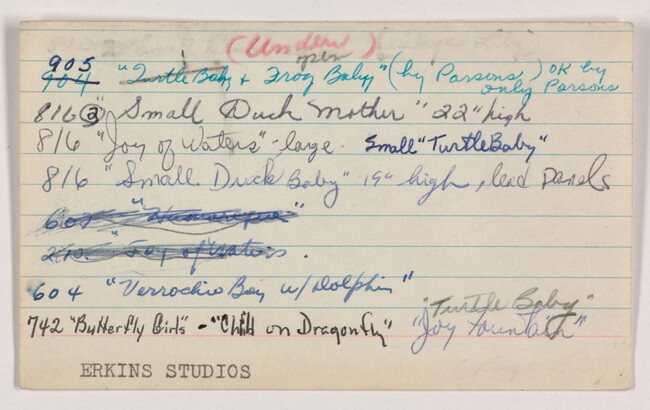 (Under)
pen
905
904 "Turtle Baby + Frog Baby" (by Parsons) OK by only Parsons
816 ② "Small Duck Mother" 22" high
816 "Joy of Waters" - large. Small "Turtle Baby"
816 "Small Duck Baby" 19" high, lead Panels
601 "
210 "Joy of Waters.
604 "Verrochio Boy w/Dolphin"
"Turtle Baby"
742 "Butterfly Girls" - "Child on Dragonfly" "Joy Fountain"
ERKINS STUDIOS